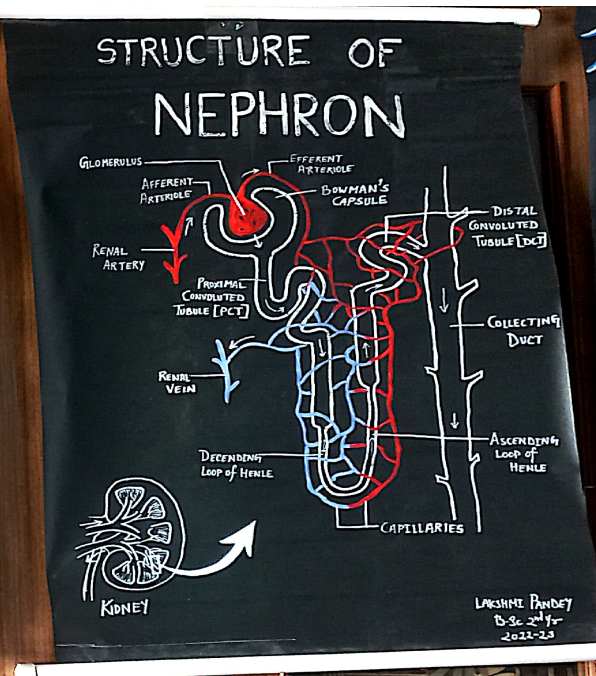 STRUCTURE OF
NEPHRON
GLOMERULUS
EFFERENT
ARTERIOLE
AFFERENT
ARTERIOLE
BOWMAN'S
CAPSULE
DISTAL
CONVOLUTED
TUBULE [DCT]
RENAL
ARTERY
PROXIMAL
CONVOLUTED
TUBULE [PCT]
COLLECTING
DUCT
RENAL
VEIN
ASCENDING
LOOP OF
HENLE
DECENDING
LOOP OF HENLE
CAPILLARIES
KIDNEY
LAKSHMI PANDEY
B.Sc 2nd Yr
2022-23